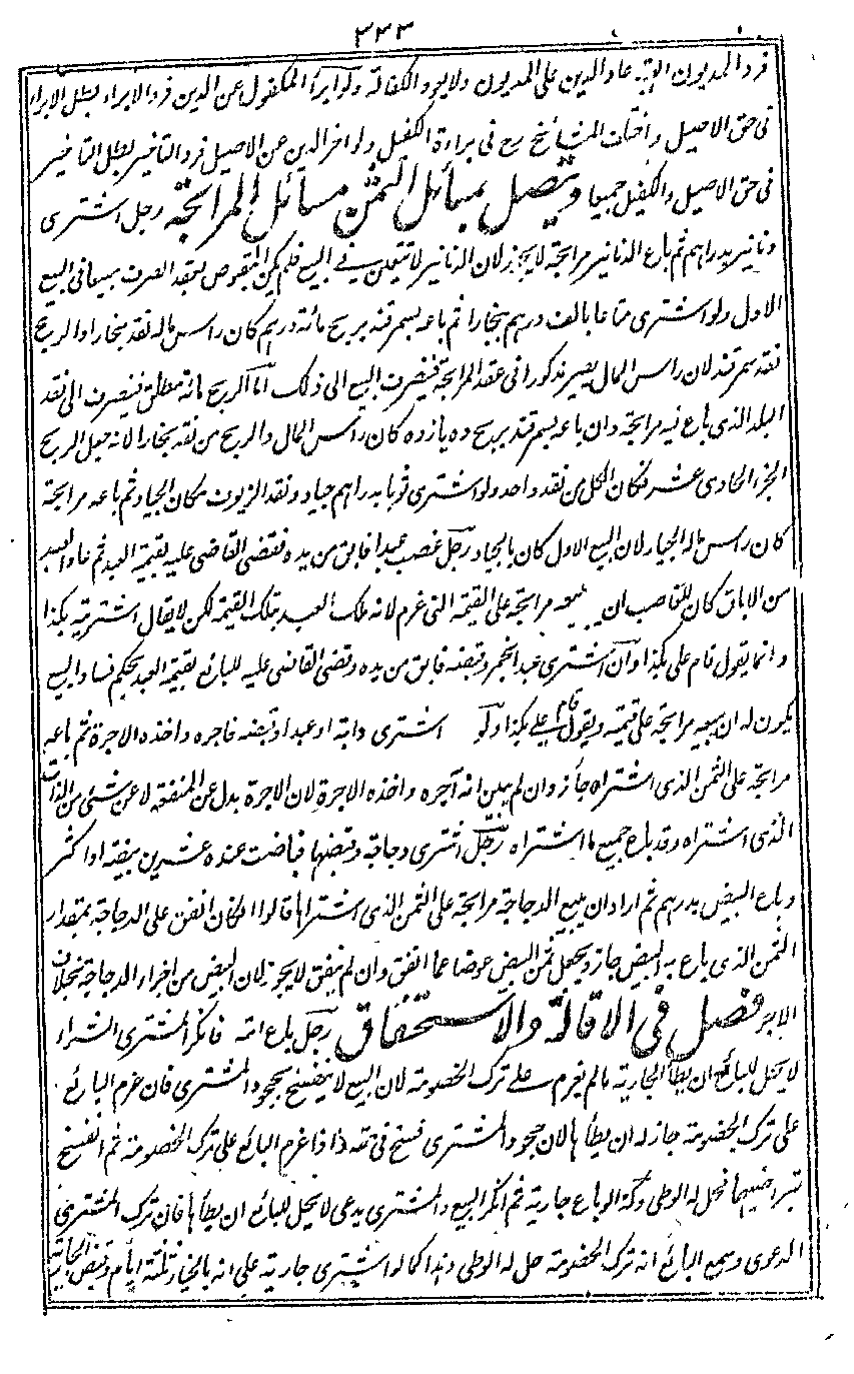 ٣٣٣
فرد المديون الهبة عاد الدين على المديون ولا يعود الكفالة ولو ابرأ المكفول عن الدين فرد الابراء بطل الابراء
فى حق الاصيل واختلف المشائخ رح فى براءة الكفيل ولو اخر الدين عن الاصيل فرد التاخير بطل التاخير
فى حق الاصيل والكفيل جميعا ويتصل بمسائل الثمن مسائل المرابحة رجل اشترى
دنانير بدراهم ثم باع الدنانير مرابحة لا يجوز لان الدنانير لا تتعين فى البيع فلم يكن المقبوض بعقد الصرف مبيعا فى البيع
الاول ولو اشترى متاعا بالف درهم ببخارا ثم باعه بسمرقند بربح مائة درهم كان راس ماله نقد بخارا والربح
نقد سمرقند لان راس المال يصير مذكورا فى عقد المرابحة فينصرف البيع الى ذلك اما الربح مائة مطلق فينصرف الى نقد
البلد الذى باع فيه مرابحة وان باعه بسمرقند بربح ده يازده كان راس المال والربح من نقد بخارا لانه جعل الربح
الجزء الحادى عشر فكان الكل من نقد واحد ولو اشترى ثوبا بدراهم جياد ونقد الزيوف مكان الجياد ثم باعه مرابحة
كان راس ماله الجياد لان البيع الاول كان بالجياد رجل غصب عبدا فابق من يده فقضى القاضى عليه بقيمة العبد ثم عاد العبد
من الاباق كان للغاصب ان يبيعه مرابحة على القيمة التى غرم لانه ملك العبد بتلك القيمة لكن لا يقال اشتريته بكذا
وانما يقول قام على بكذا وان اشترى عبدا بخمر وقبضه فابق من يده وقضى القاضى عليه للبائع بقيمة العبد بحكم فساد البيع
يكون له ان يبيعه مرابحة على قيمته ويقول قام على بكذا ولو اشترى دابة او عبدا وقبضه فاجره واخذه الاجرة ثم باعه
مرابحة على الثمن الذى اشتراه جاز وان لم يبين انه آجره واخذه الاجرة لان الاجرة بدل عن المنفعة لا عن شئ من الذات
الذى اشتراه وقد باع جميع ما اشتراه رجل اشترى دجاجة وقبضها فباضت عنده عشرين بيضة او اكثر
وباع البيض بدرهم ثم اراد ان يبيع الدجاجة مرابحة على الثمن الذى اشتراها قالوا ان كان انفق على الدجاجة بمقدار
الثمن الذى باع به البيض جاز ويجعل ثمن البيض عوضا عما انفق وان لم ينفق لا يجوز لان البيض من اجزاء الدجاجة بخلاف
الاجر فصل فى الاقالة والاستحقاق رجل باع امة فانكر المشترى الشراء
لا يحل للبائع ان يطأ الجارية ما لم يعزم على ترك الخصومة لان البيع لا ينفسخ بجحود المشترى فان عزم البائع
على ترك الخصومة جاز له ان يطأها لان جحود المشترى فسخ فى حقه فاذا عزم البائع على ترك الخصومة ثم الفسخ
بتراضيهما فحل له الوطى وكذا لو باع جارية ثم انكر البيع والمشترى يدعى لا يحل للبائع ان يطأها فان ترك المشترى
الدعوى وسمع البائع انه ترك الخصومة حل له الوطى وهذا كما لو اشترى جارية على انه بالخيار ثلثة ايام وقبض الجارية